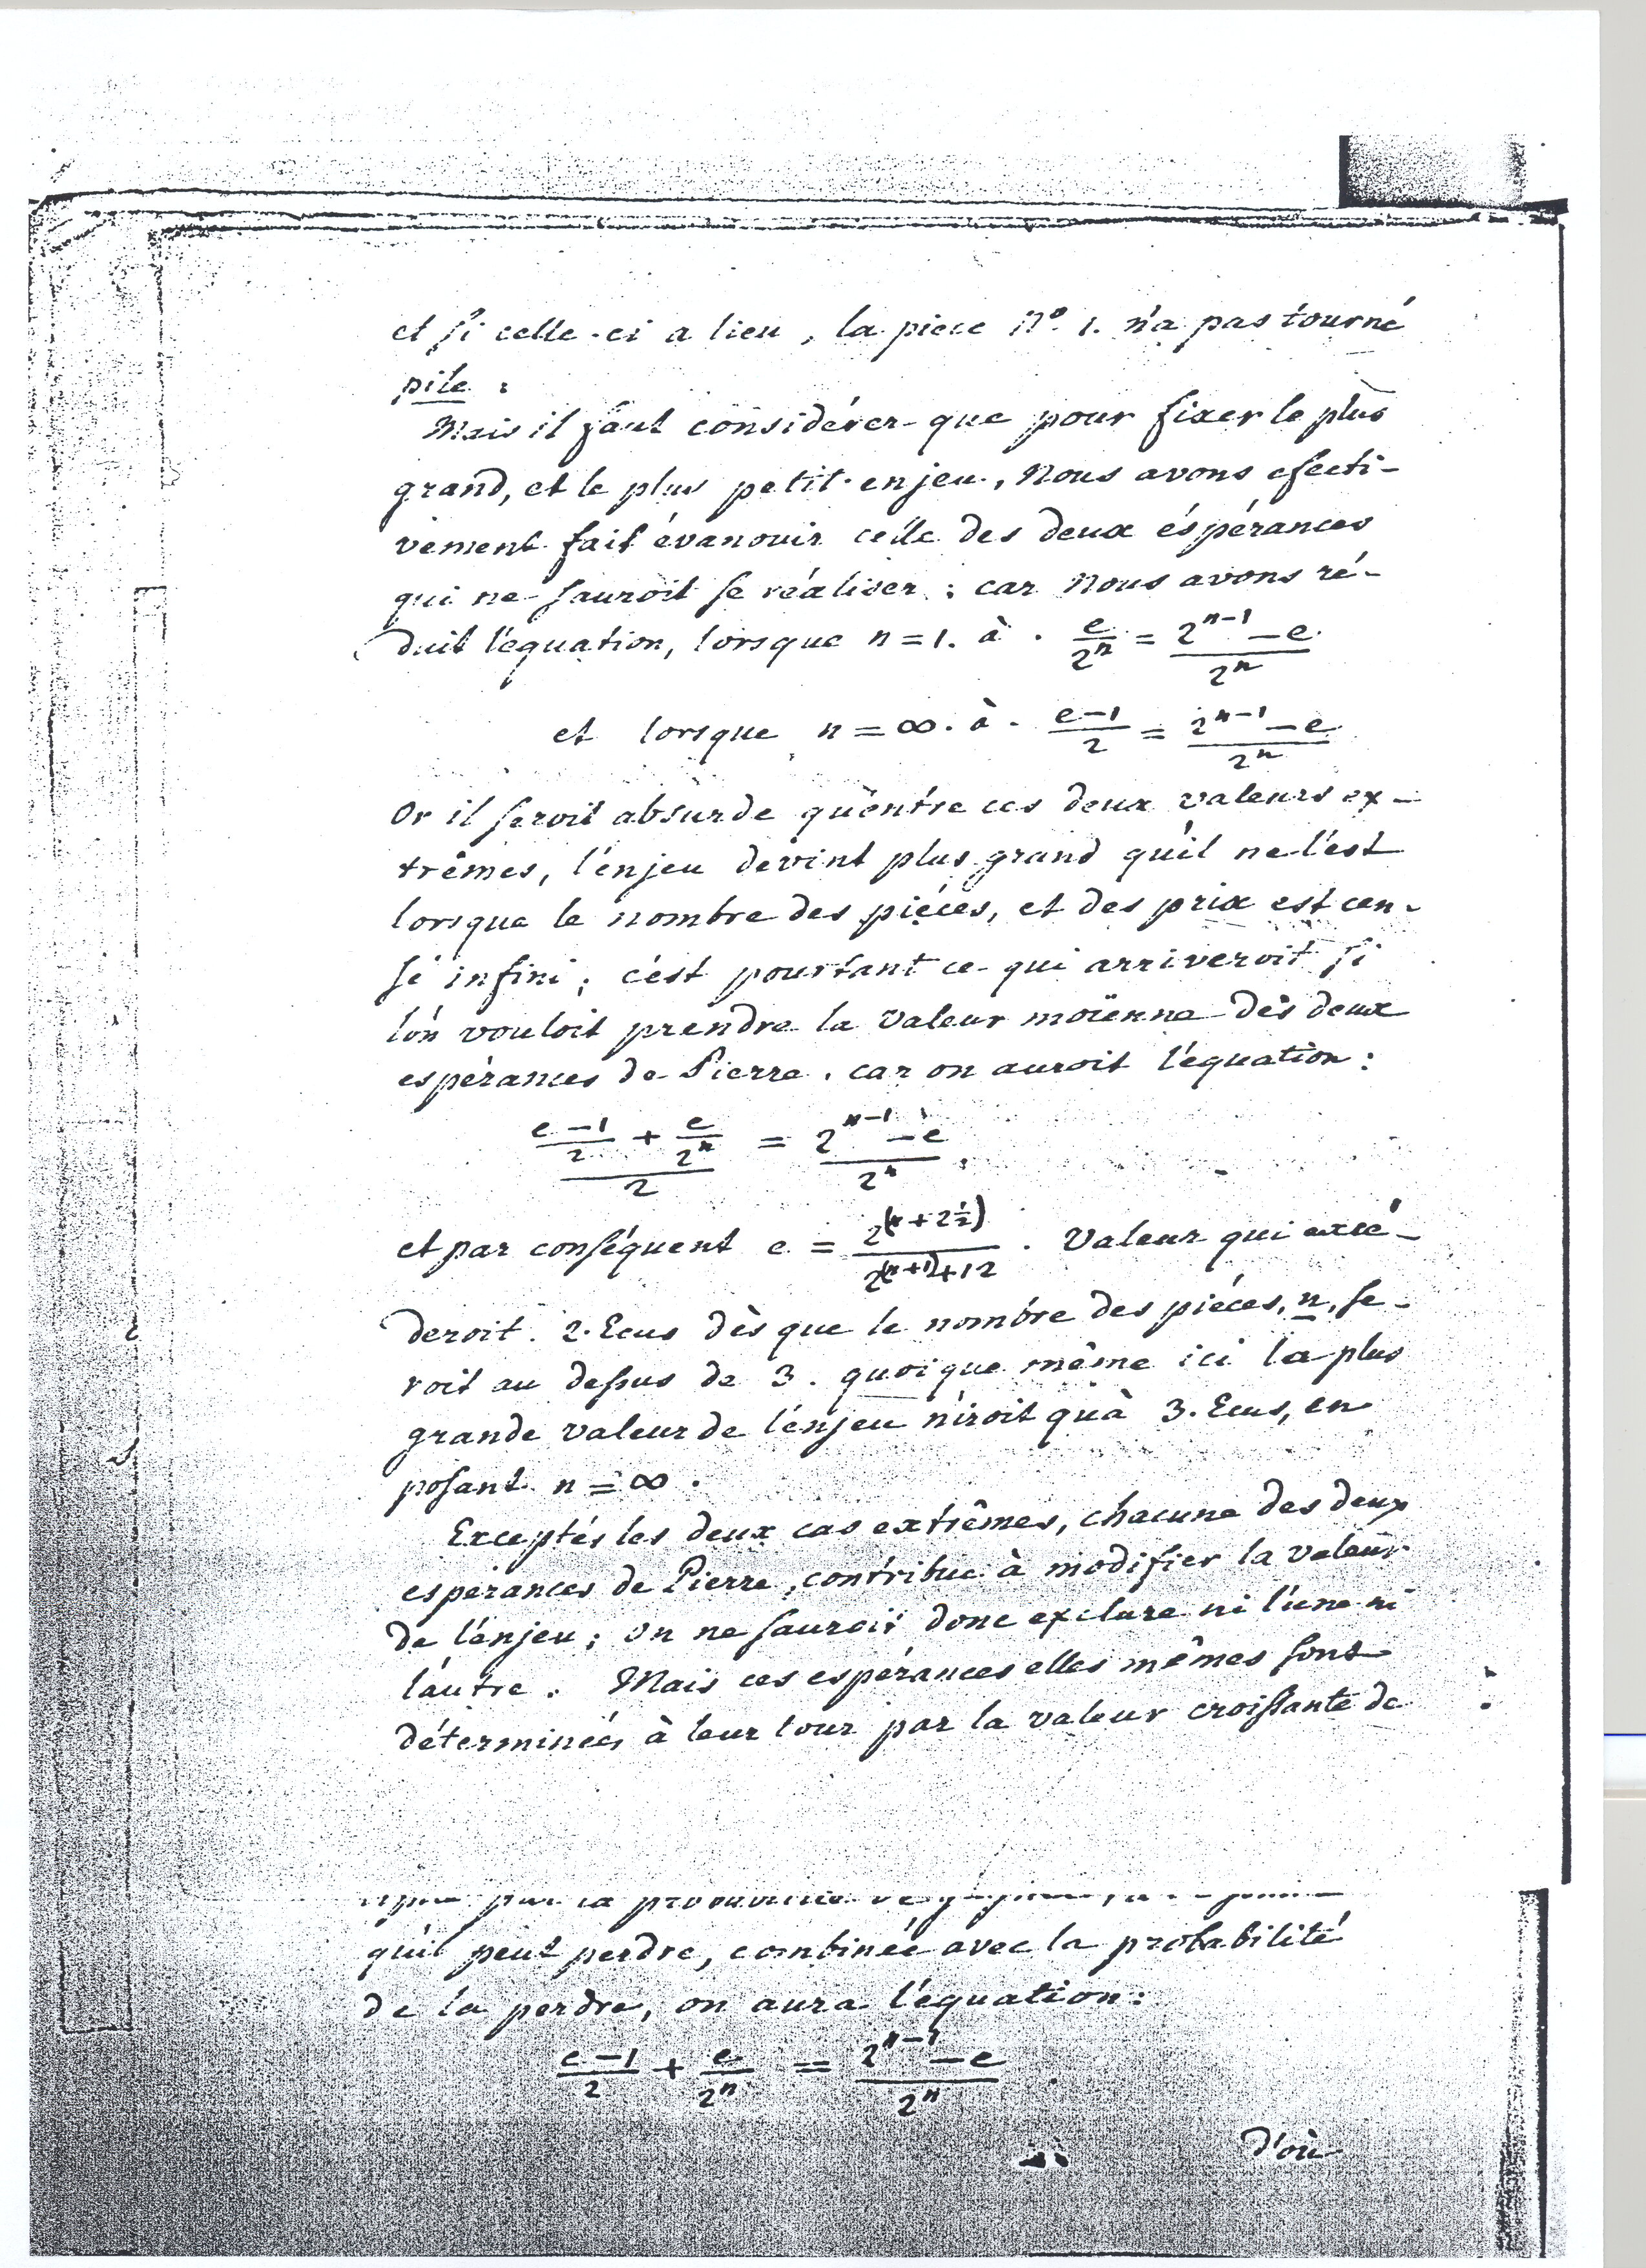 et si celle-ci a lieu, la piece N.º 1. n'a pas tourné
pile :
Mais il faut considérer que pour fixer le plus
grand, et le plus petit enjeu, Nous avons efecti-
vement fait évanouir celle des deux éspérances
qui ne sauroit se réaliser ; car Nous avons ré-
duit l'equation, lorsque n = 1. à . e/2^n = (2^{n-1} - e)/2^n
et lorsque n = ∞. à . (e-1)/2 = (2^{n-1} - e)/2^n
Or il seroit absurde qu'entre ces deux valeurs ex-
trêmes, l'enjeu devint plus grand qu'il ne l'est
lorsque le nombre des piéces, et des prix est cen-
sé infini ; c'est pourtant ce qui arriveroit si
l'on vouloit prendre la valeur moïenne des deux
espérances de Pierre. car on auroit l'équation :
((e-1)/2 + e/2^n)/2 = (2^{n-1} - e)/2^n.
et par conséquent e = 2^{(n+2½)}/2^{(n+1)}+12 . Valeur qui excé-
deroit. 2. Ecus dès que le nombre des piéces, n, se-
roit au dessus de 3. quoique même ici la plus
grande valeur de l'enjeu n'iroit qu'à 3. Ecus, en
posant n = ∞ .
Exceptés les deux cas extrêmes, chacune des deux
espérances de Pierre, contribue à modifier la valeur
de l'enjeu ; on ne sauroit donc exclure ni l'une ni
l'autre. Mais ces espérances elles mêmes sont
déterminées à leur tour par la valeur croissante de
par la
qu'il peut perdre, combinée avec la probabilité
de la perdre, on aura l'équation :
(e-1)/2 + e/2^n = (2^{n-1} - e)/2^n .
D'où